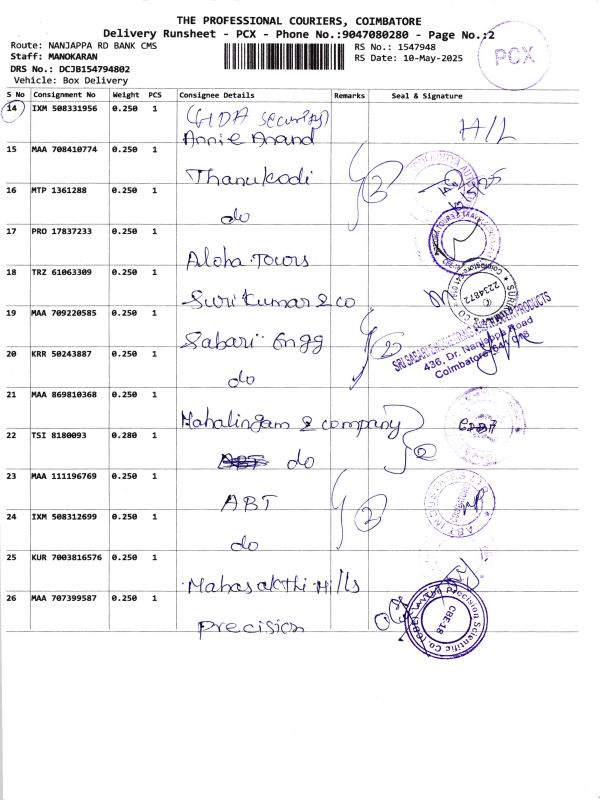 THE PROFESSIONAL COURIERS, COIMBATORE
Delivery Runsheet - PCX - Phone No.:9047080280 - Page No.:2
Route: NANJAPPA RD BANK CMS
Staff: MANOKARAN
DRS No.: DCJB154794802
Vehicle: Box Delivery
RS No.: 1547948
RS Date: 10-May-2025
PCX
S No Consignment No Weight PCS Consignee Details Remarks Seal & Signature
14 IXM 508331956 0.250 1 Annie Anand H/L
15 MAA 708410774 0.250 1 Thanukodi 2
16 MTP 1361288 0.250 1 do
17 PRO 17837233 0.250 1 Aloha Tours
18 TRZ 61063309 0.250 1 Suri Kumar & co
2234872
19 MAA 709220585 0.250 1 Sabari Engg 2
436, Dr. Nanjappa Road
Coimbatore
20 KRR 50243887 0.250 1 do
21 MAA 869810368 0.250 1 Mahalingam & company 2
22 TSI 8180093 0.280 1 do
23 MAA 111196769 0.250 1 ABT 2
24 IXM 508312699 0.250 1 do
25 KUR 7003816576 0.250 1 Mahasakthi Mills
26 MAA 707399587 0.250 1 Precision
Precision Scientific Co.
CBE-18